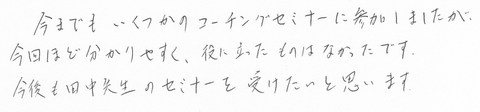 今までも いくつかのコーチングセミナーに参加しましたが、
今回ほど分かりやすく、役に立ったものはなかったです.
今後も田中先生のセミナーを受けたいと思います.